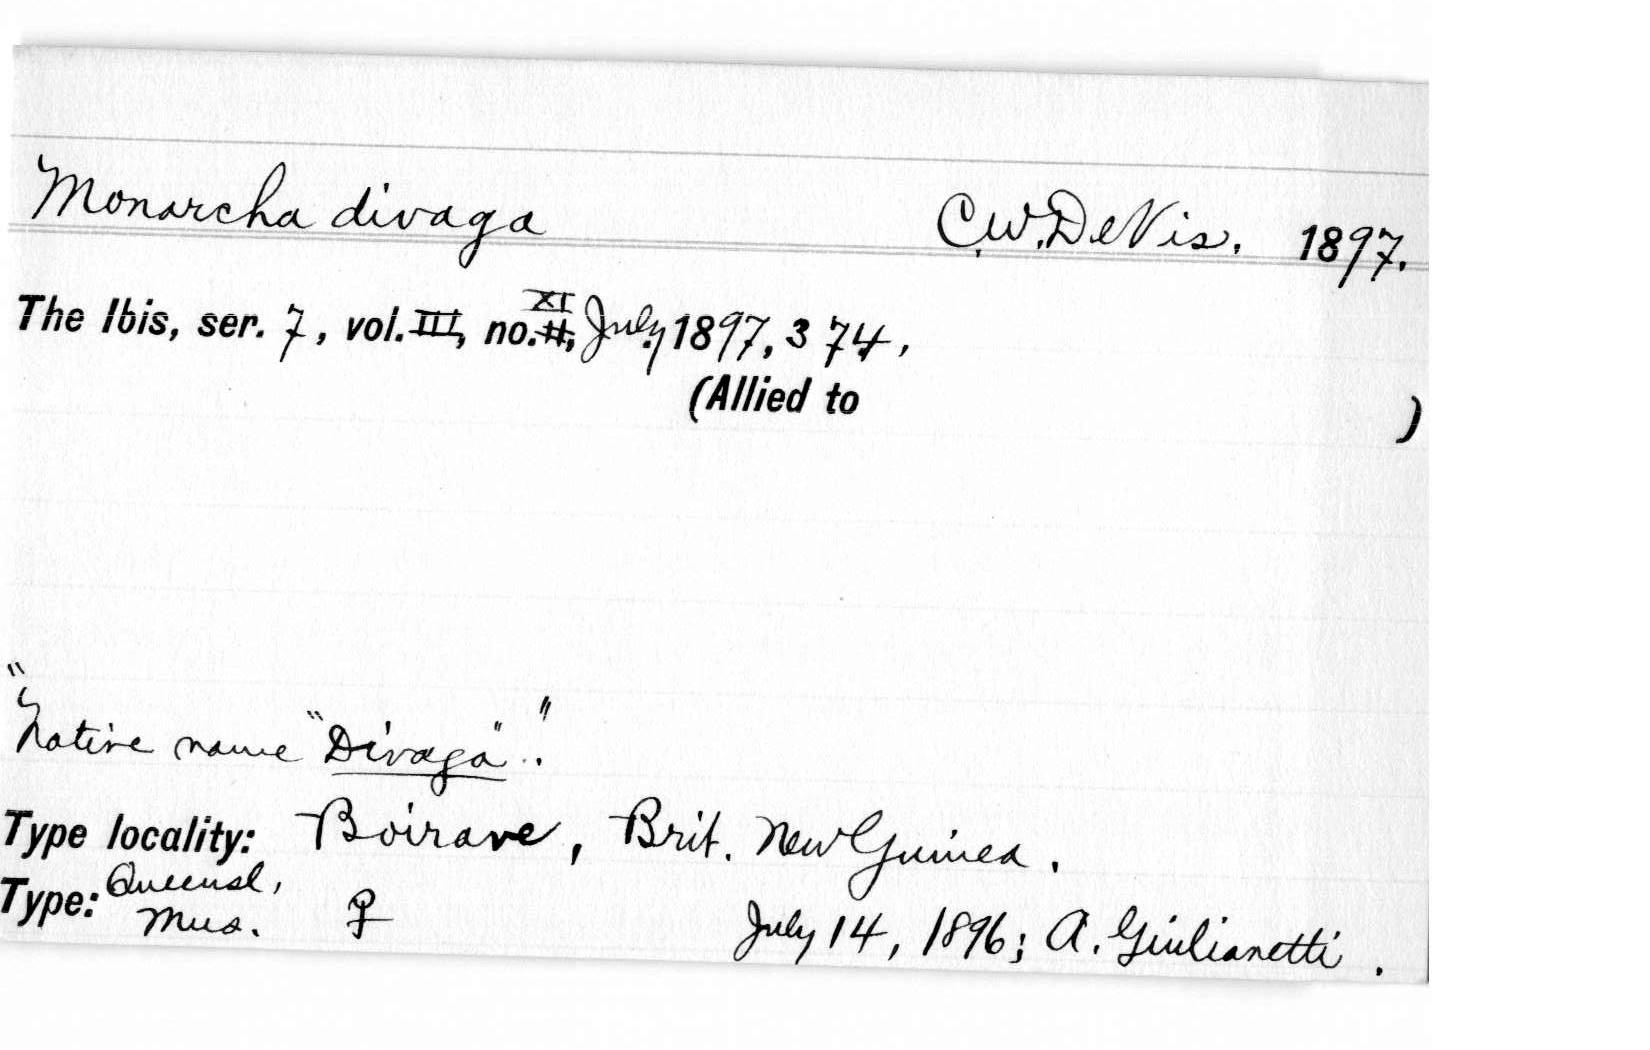 Monarcha divaga C.W. DeVis. 1897.
The Ibis, ser. 7, vol. III, no. XI, July 1897, 374,
(Allied to )
"Native name "Divaga"."
Type locality: Boirave, Brit. New Guinea.
Type: Queensl, Mus. ♀ July 14, 1896; A. Giulianetti.